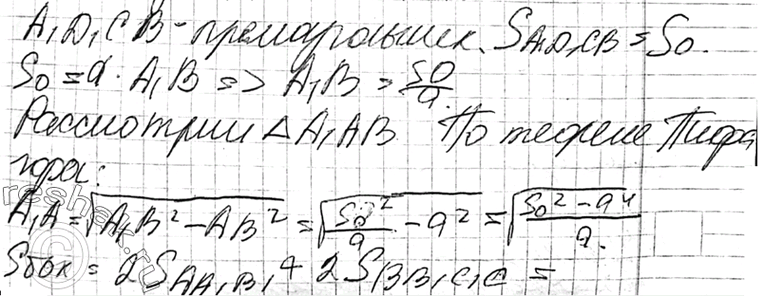 A₁D₁CB - прямоугольник. S A₁D₁CB = S₀.
S₀ = a · A₁B => A₁B = S₀/a.
Рассмотрим △A₁AB. По теореме Пифа
гора:
A₁A = √(A₁B² - AB²) = √(S₀²/a - a²) = √((S₀² - a⁴)/a)
Sбок = 2S AA₁B₁ + 2S BB₁C₁C =